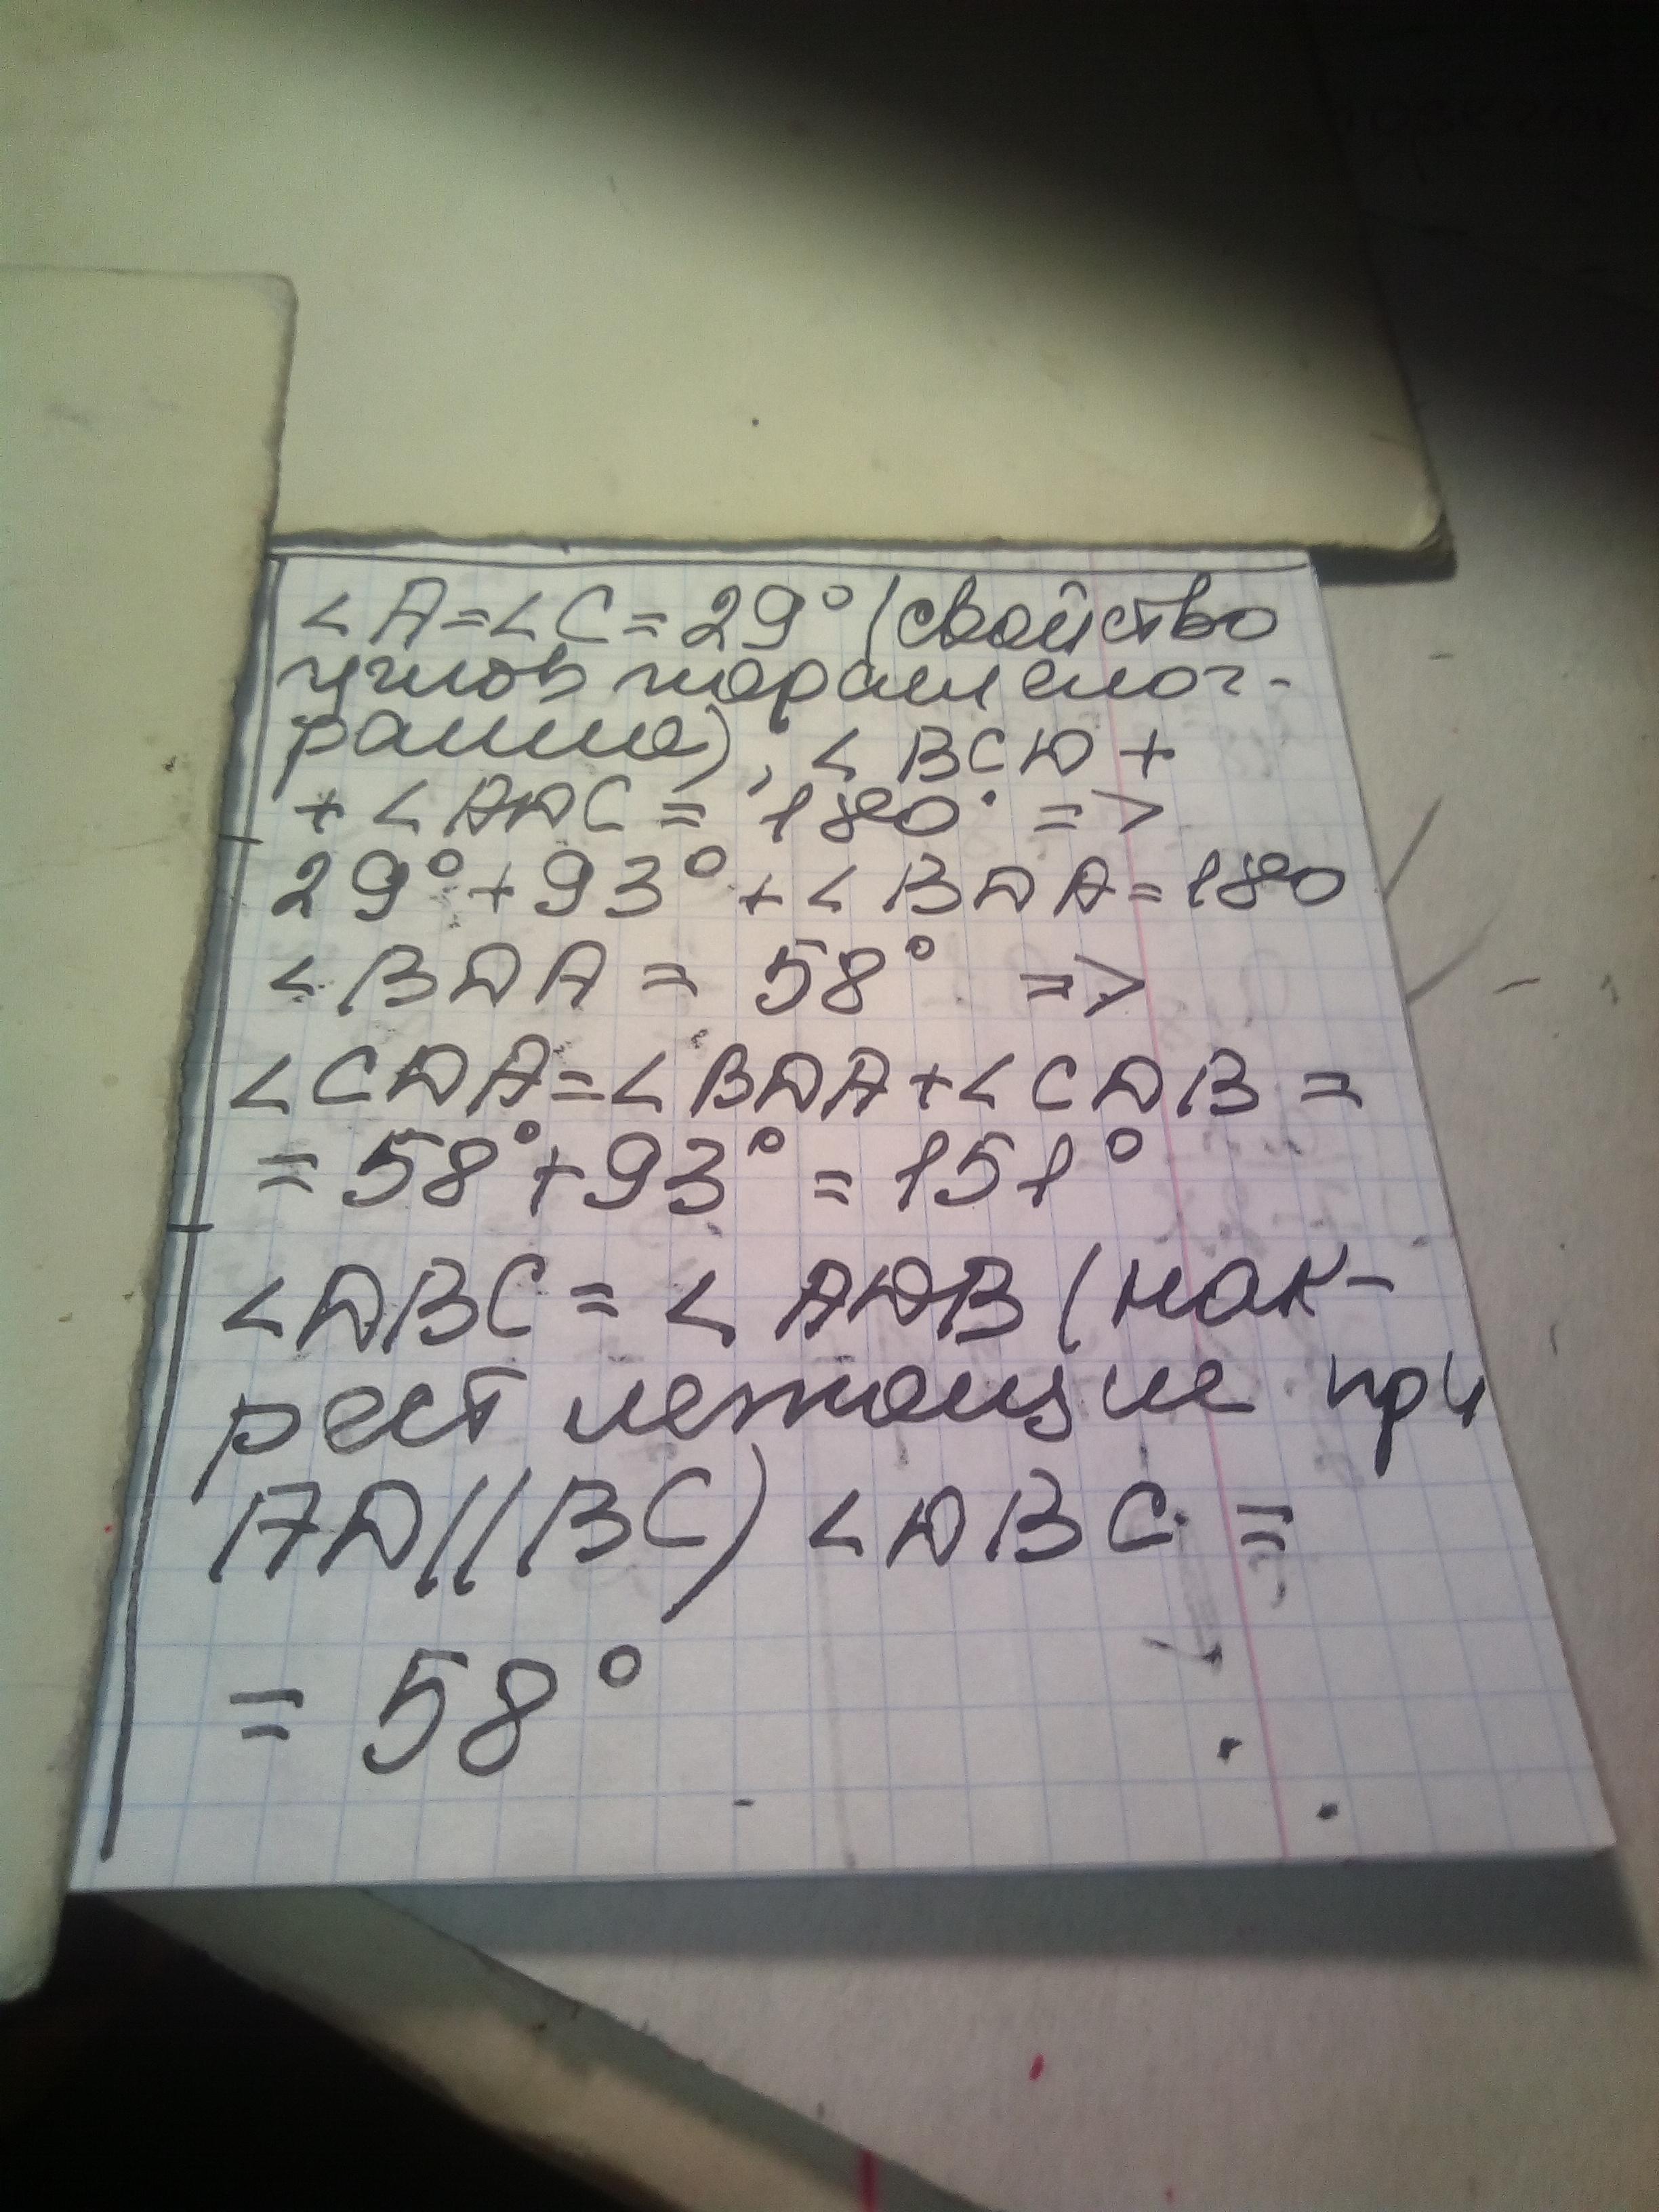 ∠A=∠C=29° (свойство
углов паралелог-
рамма), ∠BCD +
+ ∠ADC = 180° =>
29° + 93° + ∠BDA = 180
∠BDA = 58° =>
∠CDA = ∠BDA + ∠CDB =
= 58° + 93° = 151°
∠DBC = ∠ADB (нак-
рест лежащие при
AD||BC) ∠DBC =
= 58°